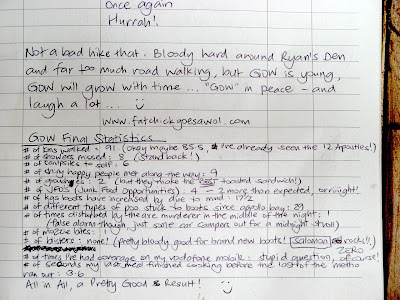 once again
Hurrah!
Not a bad hike that. Bloody hard around Ryan's Den
and far too much road walking, but GOW is young,
GOW will grow with time ... "GOW" in peace - and
laugh a lot ...
www.fatchickgoesawol.com
GOW Final Statistics
# of kms walked : 91 (okay maybe 85.5, I've already seen the 12 Apostles!)
# of growlers missed : 8 (stand back!)
# of campsites to self : 6
# of shiny happy people met along the way : 9
# of : 2 (but they make the best toasted sandwich!)
# of JFO's (Junk Food Opportunities) : 4 - 2 more than expected, orriiight!
# of kgs boots have increased by due to mud : 17½
# of different types of poo stuck to boots since apollo bay : 29
# of times disturbed by the axe murderer in the middle of the night : 1
(false alarm though, just some car campers out for a midnight stroll)
# of mozzie bites : 1
# of blisters : none! (pretty bloody good for brand new boots! salomon rocks!!)
# of times I've had coverage on my vodafone mobile : stupid question, ZERO of course!
# of seconds my last meal finished cooking before the last of the metho
ran out : 3.6
All in All, a Pretty Good Result!